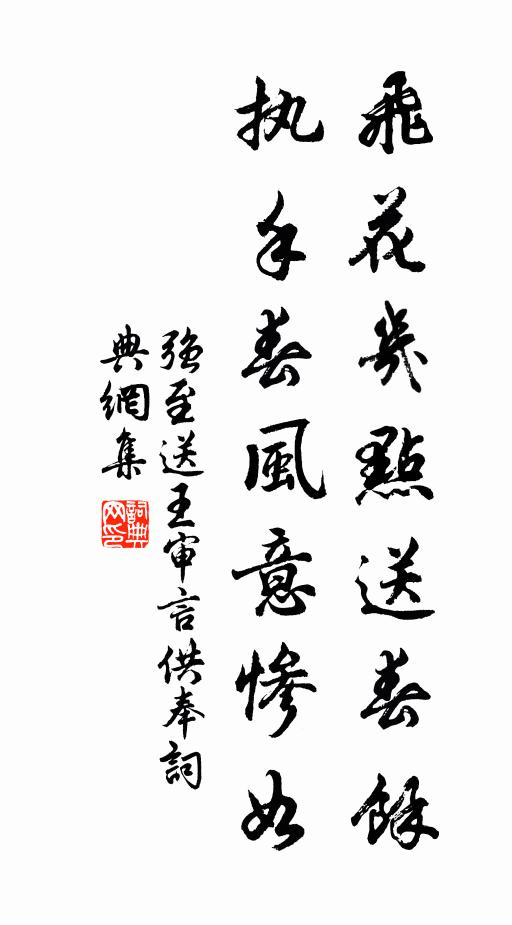 飛花幾點送春餘
执手春風意慘如
强至送王审言供奉詞
典網集
詞典网印